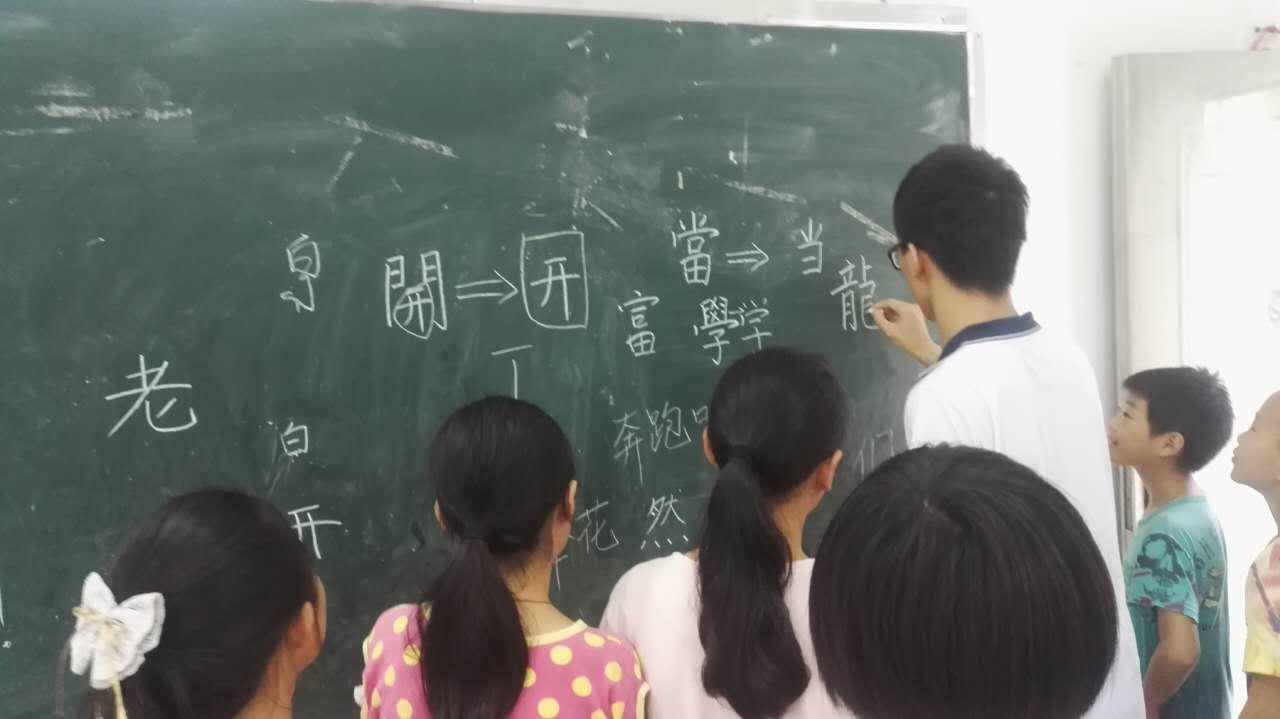 開 ⇒ 开
當 ⇒ 当
富 學 学
龍
老
白
开
奔跑
们
花 然